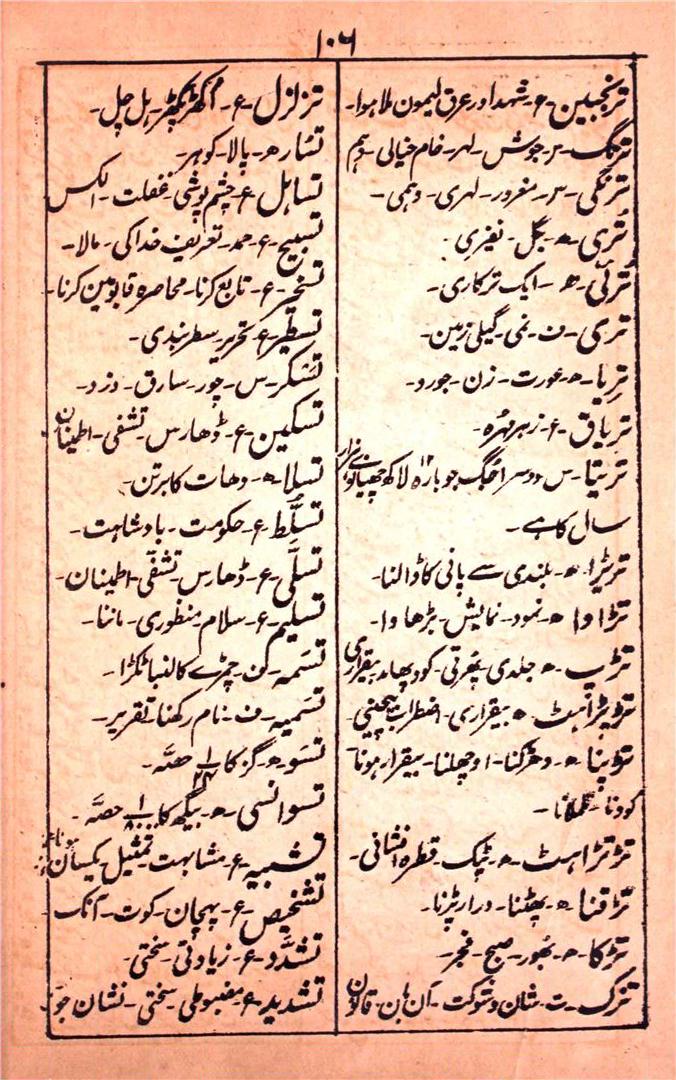 ۱۰۶
ترنجبین۔ع۔شہد اور عرق لیمون ملا ہوا۔
ترنگ۔س۔جوش۔لہر۔خام خیالی۔وہم
ترنگی۔س۔مغرور۔لہری۔وہمی۔
تُرہی۔ھ۔بگل۔نفیری۔
تُرئی۔ھ۔ایک ترکاری۔
تری۔ف۔نمی۔گیلی زمین۔
تریا۔ھ۔عورت۔زن۔جورو۔
تریاق۔ع۔زہر مہرہ۔
تریتا۔س۔دوسرا جُگ جو بارہ لاکھ چھیانوے ہزار
سال کا ہے۔
تریڑا۔ھ۔بلندی سے پانی کا ڈالنا۔
تڑاوا۔ھ۔نمود۔نمایش۔بڑھاوا۔
تڑپ۔ھ۔جلدی۔پھرتی۔کود پھاند۔بیقراری
ھ۔بیقراری۔اضطراب۔بیچینی۔
تڑپنا۔ھ۔دھڑکنا۔اوچھلنا۔بیقرار ہونا۔
کودنا۔تلملانا۔
تڑتڑاہٹ۔ھ۔ٹپک۔قطرہ افشانی۔
تڑقنا۔ھ۔پھٹنا۔درار پڑنا۔
تڑکا۔ھ۔بھور۔صبح۔فجر۔
تزک۔ت۔شان و شوکت۔آن بان۔قانون
تزلزل۔ع۔اُکھڑ پکھڑ۔ہل چل۔
تسار۔ھ۔پالا۔کوہر۔
تساہل۔ع۔چشم پوشی۔غفلت۔الکس
تسبیح۔ع۔حمد۔تعریف خدا کی۔مالا۔
تسخیر۔ع۔تابع کرنا۔محاصرہ۔قابو مین کرنا۔
تسطیر۔ع۔تحریر۔سطر بندی۔
تسکر۔س۔چور۔سارق۔دزد۔
تسکین۔ع۔ڈھارس۔تشفی۔اطینان
تسلا۔ھ۔دھات کا برتن۔
تسلّط۔ع۔حکومت۔بادشاہت۔
تسلّی۔ع۔ڈھارس۔تشفّی۔اطینان۔
تسلیم۔ع۔سلام۔منظوری۔ماننا۔
تسمہ۔ف۔چمڑے کا لنبا ٹکڑا۔
تسمیہ۔ف۔نام رکھنا۔تقریر۔
تسو۔ھ۔گز کا ۱/۲۴ حصّہ۔
تسوانسی۔ھ۔بیگھ کا ۱/۸۰۰۰ حصّہ۔
تشبیہ۔ع۔مشابہت۔تمثیل۔یکسان ہونا
تشخیص۔ع۔پہچان۔کوت۔آنک۔
تشدّد۔ع۔زیادتی۔سختی۔
تشدید۔ع۔مضبوطی۔سختی۔نشان جو